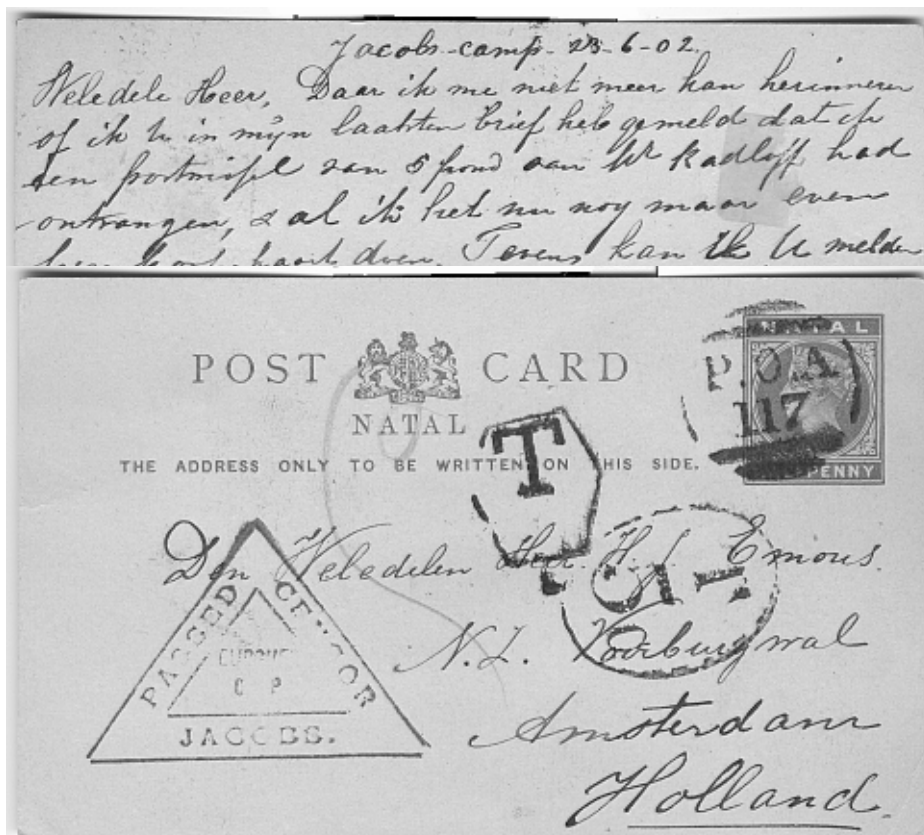 Jacobs-camp-23-6-02.
Weledele Heer, Daar ik me niet meer kan herinneren
of ik U in mijn laatsten brief heb gemeld dat ik
een postwissel van 5 pond van Mr Radloff had
ontvangen, zal ik het nu nog maar even
doen. Tevens kan ik U melden
POST CARD
NATAL
THE ADDRESS ONLY TO BE WRITTEN ON THIS SIDE.
NATAL
P.O.A
117
PENNY
T
Den Weledelen Heer H. J. Emous.
N.Z. Voorburgwal
Amsterdam
Holland.
PASSED CENSOR
C P
JACOBS.